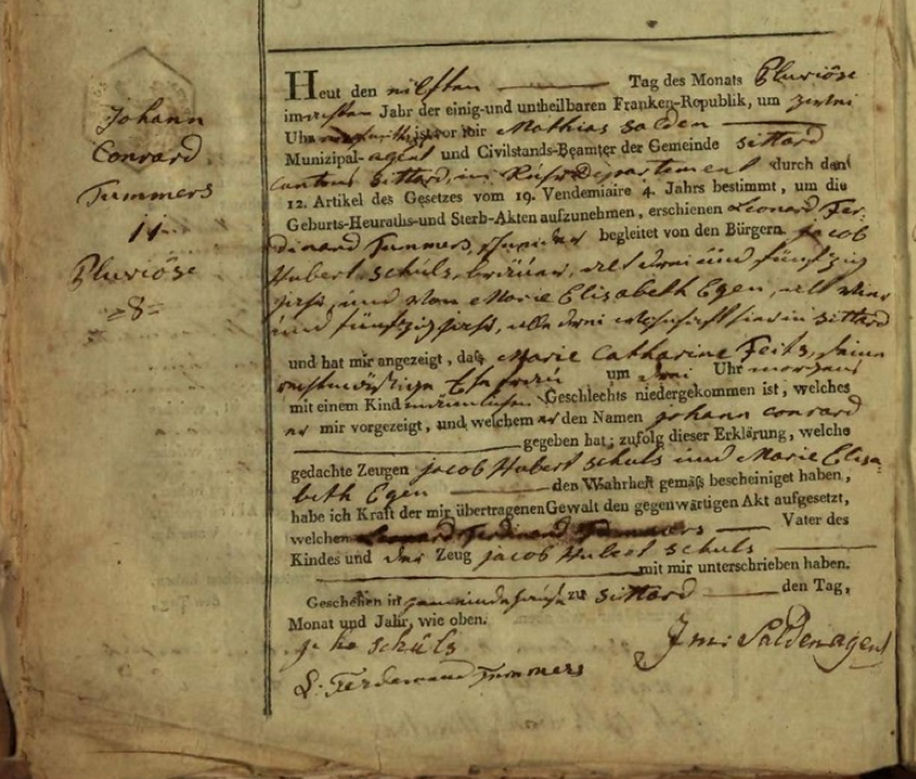 Johann
Conrard
Tummers
11
Pluviôse
=8=
Heut den eilften Tag des Monats Pluviôse
im achten Jahr der einig-und untheilbaren Franken-Republik, um zwei
Uhr ist vor mir Mathias Salden
Munizipal-agent und Civilstands-Beamter der Gemeinde Sittard
Cantons Sittard, im Ruhr Departement durch den
12. Artikel des Gesetzes vom 19. Vendemiaire 4. Jahrs bestimmt, um die
Geburts-Heuraths-und Sterb-Akten aufzunehmen, erschienen Leonard Fer-
dinand Tummers, begleitet von den Bürgern Jacob
Hubert Schuls, alt drei und fünfzig
jahr, und von Marie Elisabeth Egen, alt
und fünfzig jahr, alle drei wohnhaft hier in Sittard
und hat mir angezeigt, daß Marie Catharine Feits, seine
rechtmäßige Ehefrau um drei Uhr morgens
mit einem Kind männlichen Geschlechts niedergekommen ist, welches
er mir vorgezeigt, und welchem er den Namen Johann Conrard
gegeben hat; zufolg dieser Erklärung, welche
gedachte Zeugen Jacob Hubert Schuls und Marie Elisa-
beth Egen den Wahrheit gemäß bescheiniget haben,
habe ich Kraft der mir übertragenen Gewalt den gegenwärtigen Akt aufgesetzt,
welchen Leonard Ferdinard Tummers Vater des
Kindes und der Zeug Jacob Hubert Schuls
mit mir unterschrieben haben.
Geschehen in gemeindehause zu Sittard den Tag,
Monat und Jahr, wie oben.
Schüls
Salden agent
L: Ferdenand Tummers